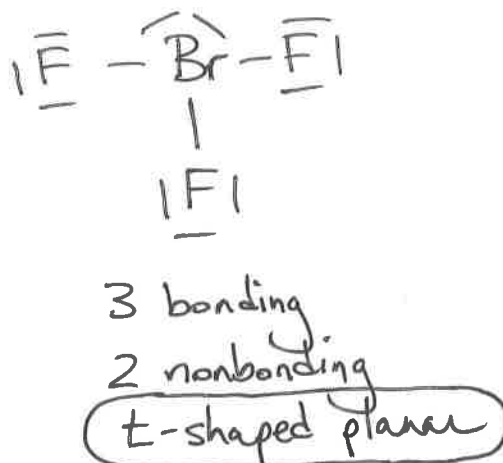 F Br F
F
3 bonding
2 nonbonding
t-shaped planar